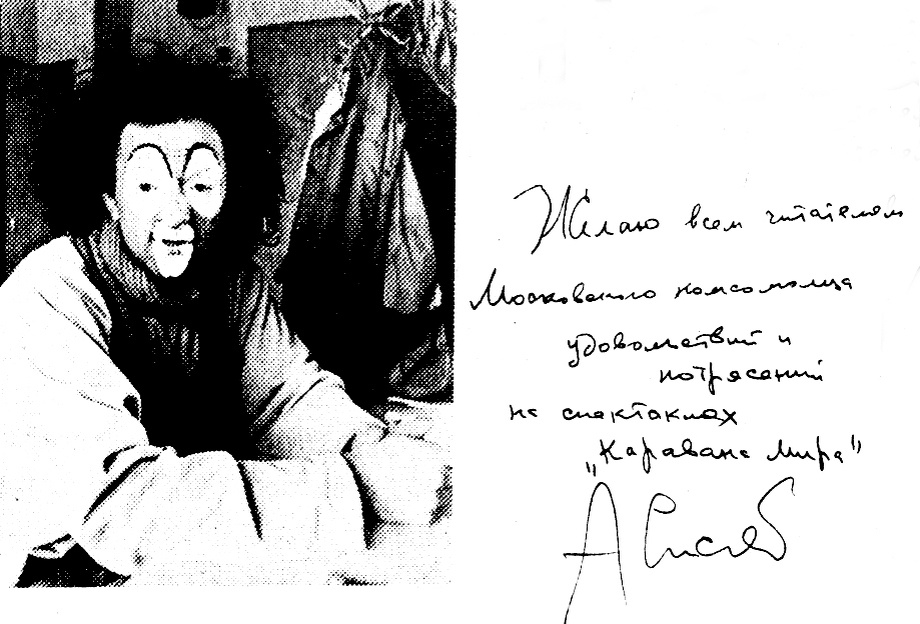 Желаю всем читателям
Московского комсомольца
удовольствий и
потрясений
на спектаклях
„Каравана мира"
А